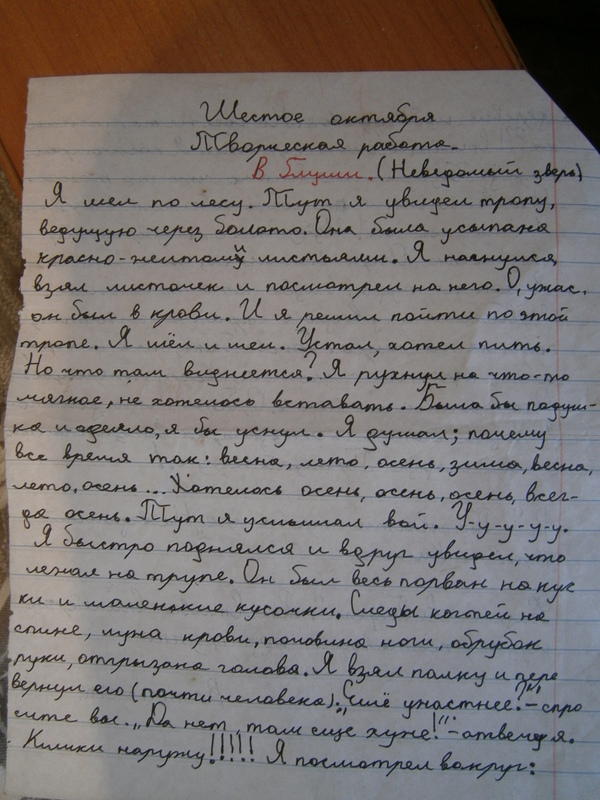 Шестое октября
Творческая работа.
В глуши. (Неведомый зверь)
Я шел по лесу. Тут я увидел тропу,
ведущую через болото. Она была усыпана
красно-желтой листьями. Я нагнулся,
взял листочек и посмотрел на него. О, ужас,
он был в крови. И я решил пойти по этой
тропе. Я шёл и шел. Устал, хотел пить.
Но что там виднеется? Я рухнул на что-то
мягкое, не хотелось вставать. Была бы подуш-
ка и одеяло, я бы уснул. Я думал; почему
все время так: весна, лето, осень, зима, весна,
лето, осень... Хотелось осень, осень, осень, всег-
да осень. Тут я услышал вой. У-у-у-у-у.
Я быстро поднялся и вдруг увидел, что
лежал на трупе. Он был весь порван на кус
ки и маленькие кусочки. Следы когтей на
спине, лужа крови, половина ноги, обрубок
руки, отгрызана голова. Я взял палку и пере
вернул его (почти человека). „Ещё ужастнее?“ - спро
сите вы. „Да нет, там еще хуже!“ - отвечу я.
Кишки наружу!!!!! Я посмотрел вокруг: